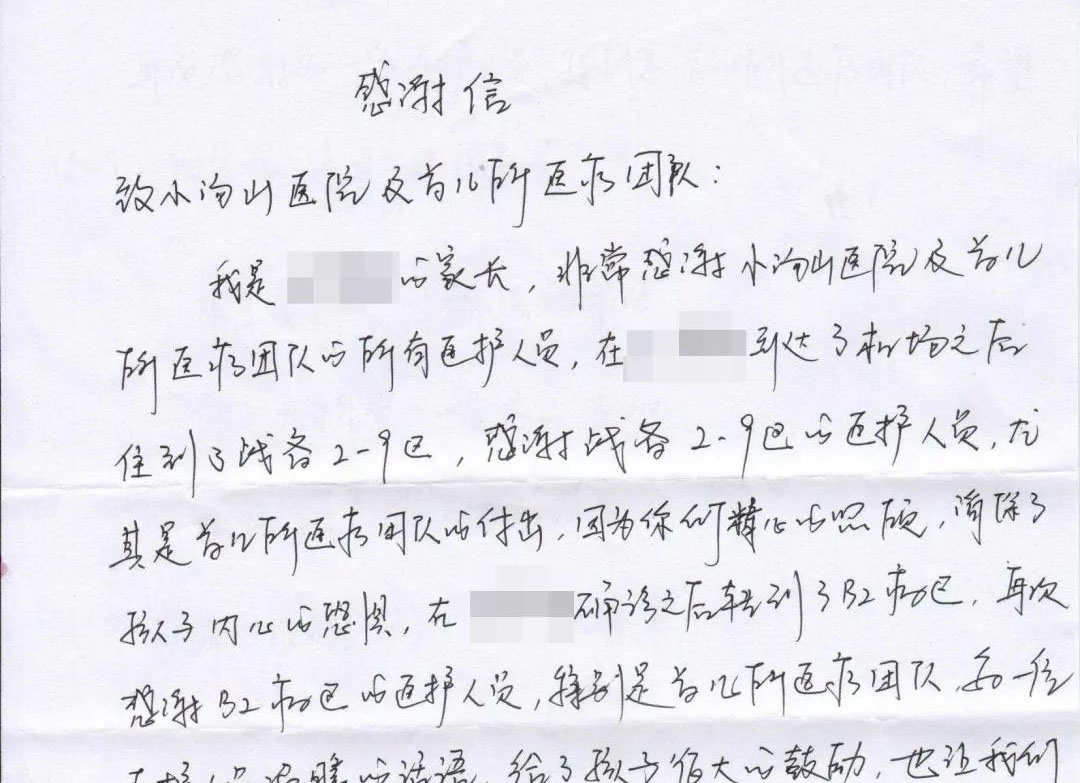 感谢信
致小汤山医院及首儿所医疗团队:
我是的家长,非常感谢小汤山医院及首儿
所医疗团队的所有医护人员,在到达了机场之后
住到了战备2-9区,感谢战备2-9区的医护人员,尤
其是首儿所医疗团队的付出,因为你们精心的照顾,消除了
孩子内心的恐惧,在确诊之后转到了B2病区,再次
感谢B2病区的医护人员,特别是首儿所医疗团队,每一位
医护人员温暖的话语,给了孩子很大的鼓励,也让我们